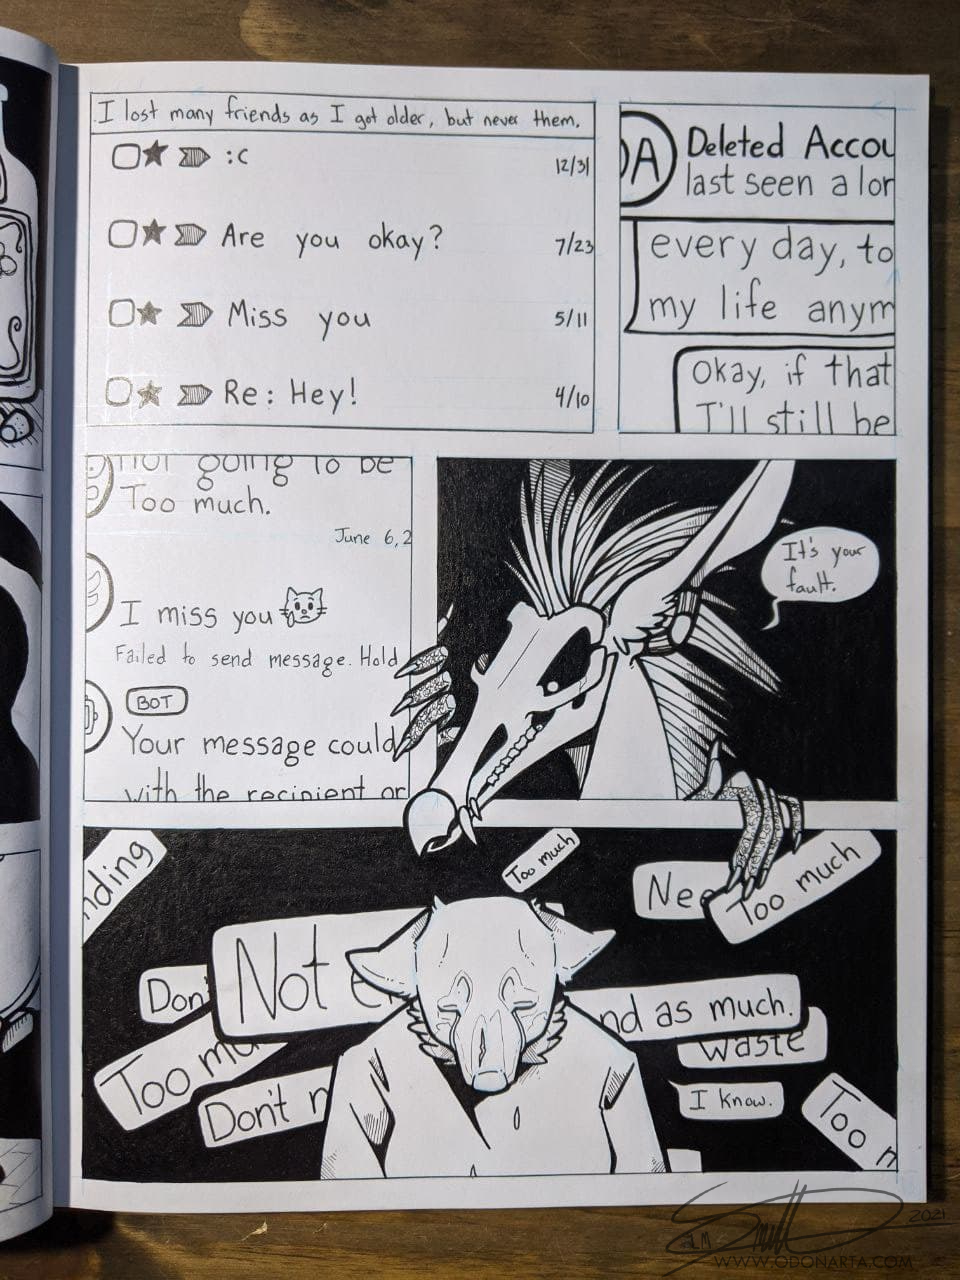 I lost many friends as I got older, but never them.
:c 12/31
Are you okay? 7/23
Miss you 5/11
Re: Hey! 4/10
DA
Deleted Accou
last seen a lon
every day, to
my life anym
okay, if that
I'll still be
not going to be
Too much.
June 6, 2
I miss you
Failed to send message. Hold
BOT
Your message could
with the recipient or
It's your
fault.
nding
Too much
Nee
Too much
Don'
Not e
nd as much.
Too mu
waste
Don't n
I know.
Too m
2021
WWW.ODONARTA.COM